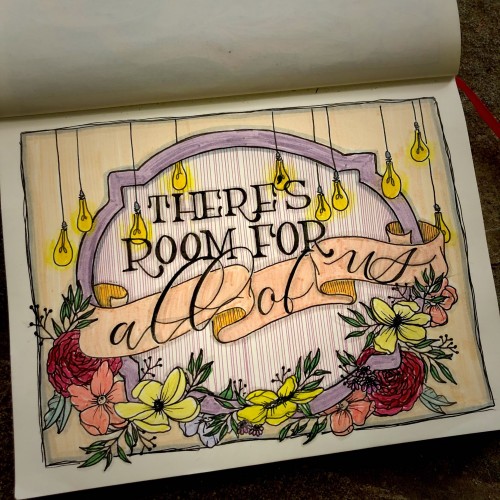 THERE'S
ROOM FOR
all of us